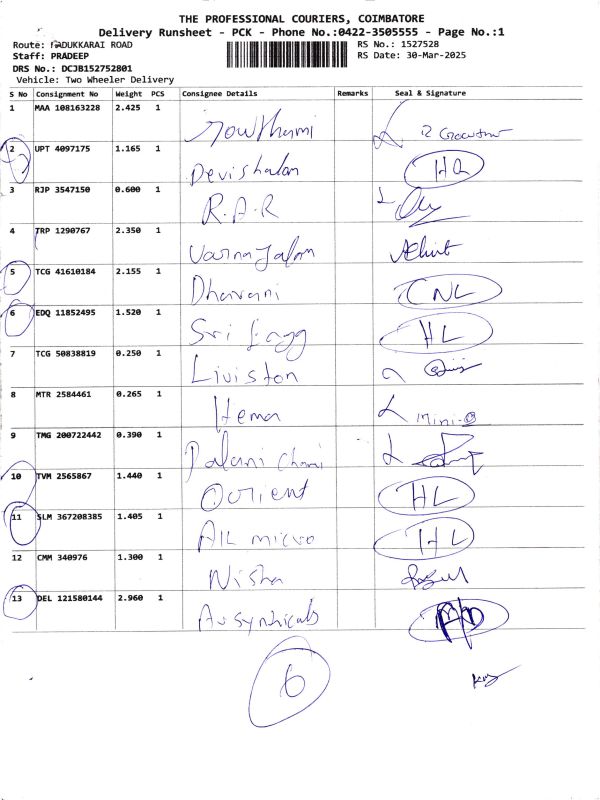 THE PROFESSIONAL COURIERS, COIMBATORE
Delivery Runsheet - PCK - Phone No.:0422-3505555 - Page No.:1
Route: MADUKKARAI ROAD
RS No.: 1527528
Staff: PRADEEP
RS Date: 30-Mar-2025
DRS No.: DCJB152752801
Vehicle: Two Wheeler Delivery
S No Consignment No Weight PCS Consignee Details Remarks Seal & Signature
1 MAA 108163228 2.425 1 Gowthami
2 UPT 4097175 1.165 1 Devishalan
3 RJP 3547150 0.600 1 R.A.R
4 TRP 1290767 2.350 1
5 TCG 41610184 2.155 1 Dharani CNL
6 EDQ 11852495 1.520 1 Sri HL
7 TCG 50838819 0.250 1 Liviston
8 MTR 2584461 0.265 1 Hema Mini
9 TMG 200722442 0.390 1 Palani
10 TVM 2565867 1.440 1 Orient HL
11 SLM 367208385 1.405 1 AIL micro HL
12 CMM 340976 1.300 1 Nisha
13 DEL 121580144 2.960 1
6